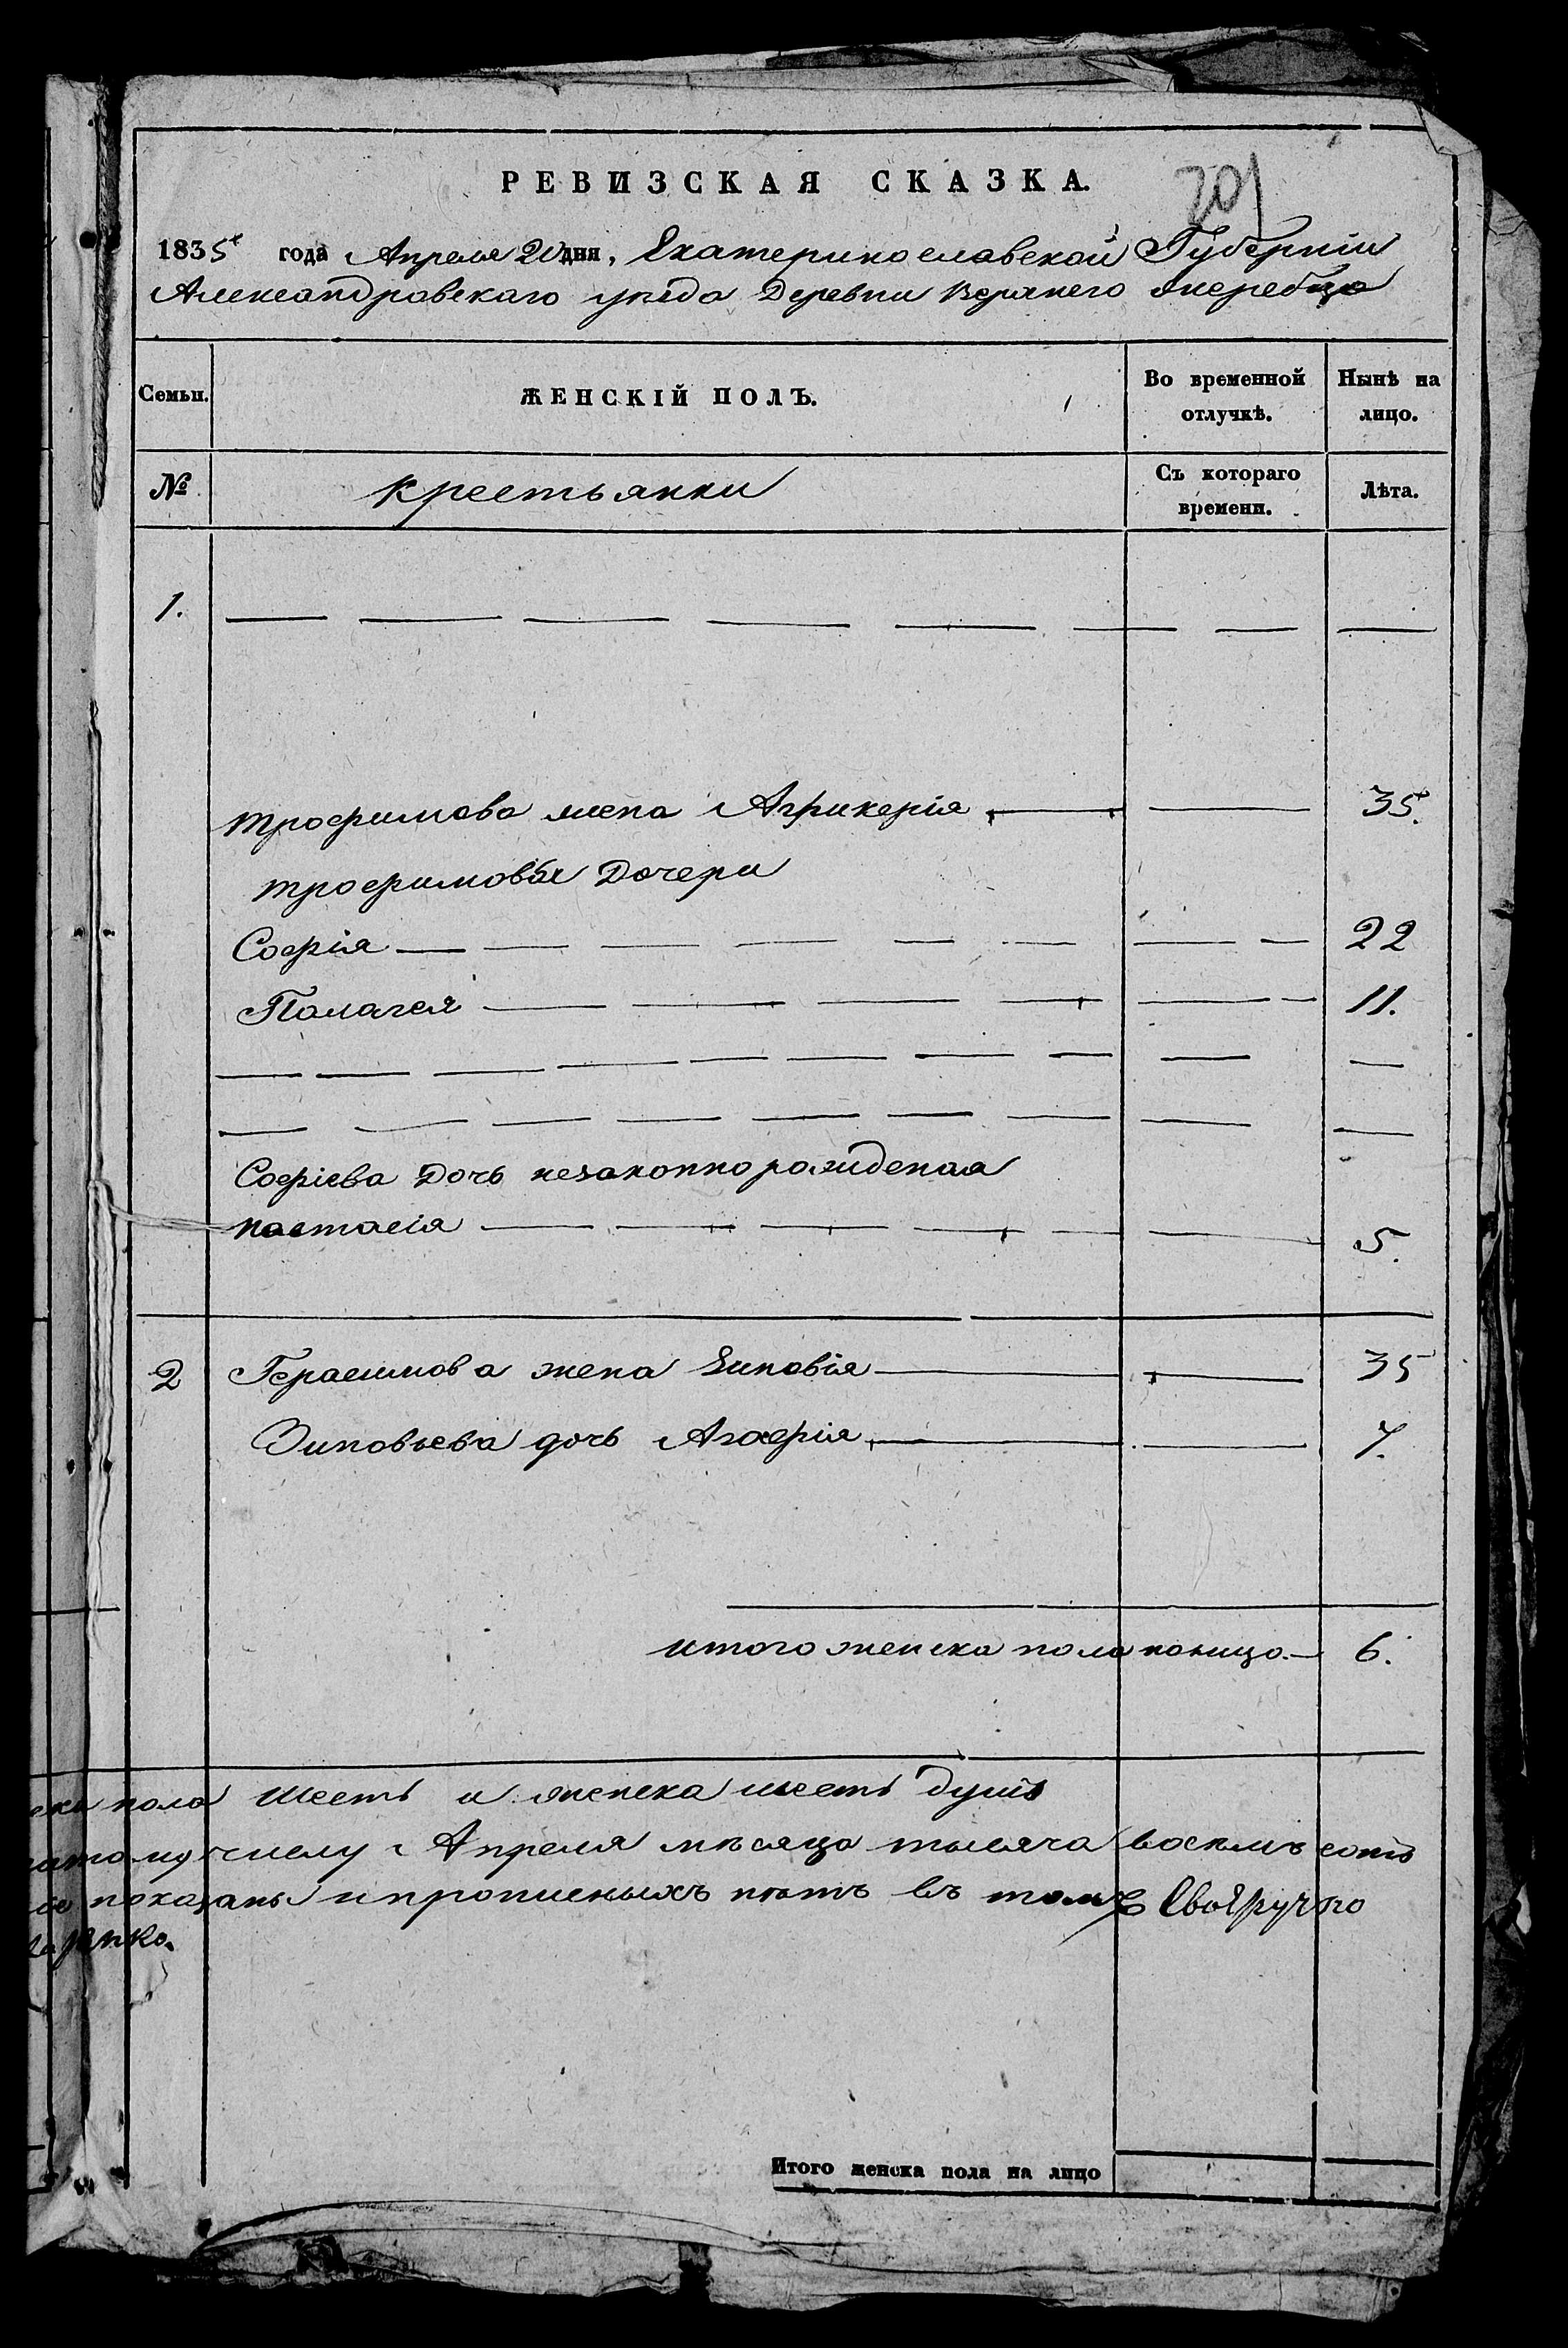 РЕВИЗСКАЯ СКАЗКА.
201
1835 года Апреля 20 дня, Екатеринославской Губерніи
Александровскаго уѣзда Деревни Верхнего Жеребца
Семьи. ЖЕНСКІЙ ПОЛЪ. Во временной отлучкѣ. Нынѣ на лицо.
№ крестьянки Съ котораго времени. Лѣта.
1.
трофимова жена Агрикерія 35.
трофимовы Дочери
Софія 22
Палагея 11.
Софіева Дочь незаконно рожденая
настасія 5.
2 Герасимова жена Зиновія 35
Зиновьева дочь Агафія 7.
итого женска пола налицо 6.
пола шесть и женска шесть Душъ
числу Апреля мѣсяца тысяча восемь сотъ
показаны и прописныхъ нѣтъ въ томъ Своеручно